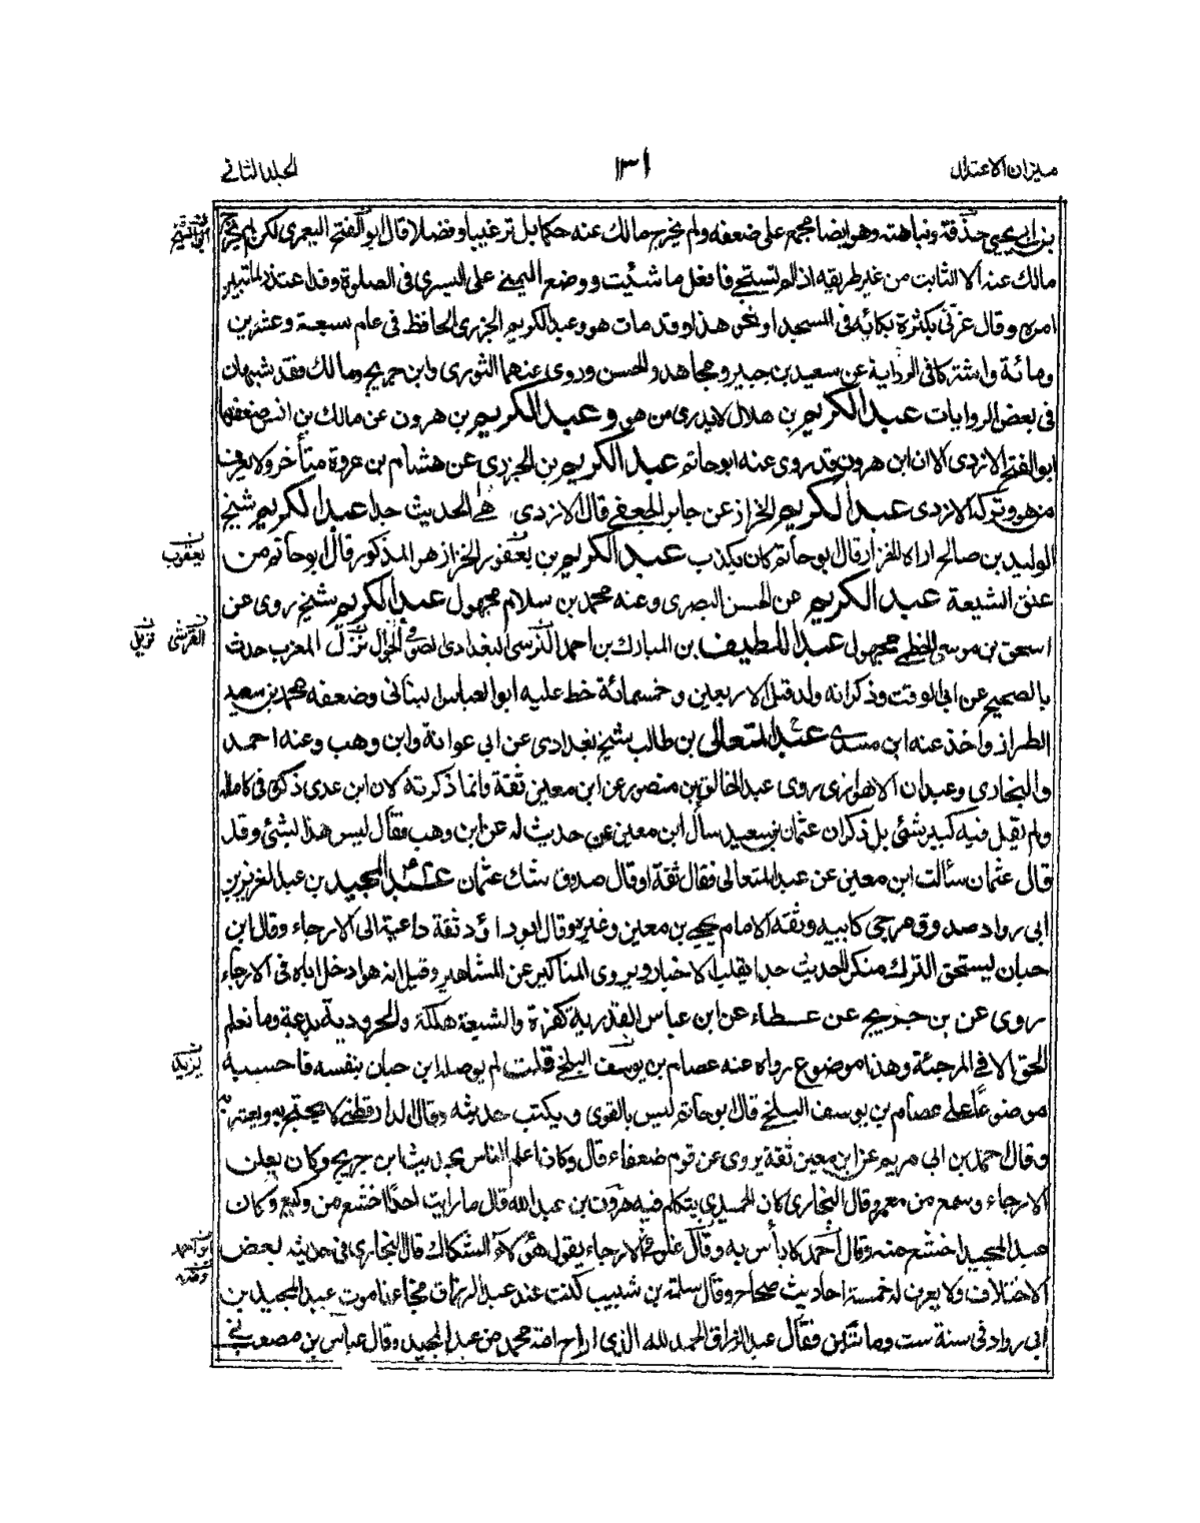 ميزان الاعتدال
١٣١
الجلد الثاني
بن ابي يحيى حذقة ونباهته وهو ايضا مجمع على ضعفه ولم يخرج مالك عنه حكما بل ترغيبا وفضلا قال ابو الفتح اليعمرى لكن لم يخرج
مالك عنه الا الثابت من غير طريقه اذ لم تستحي فافعل ما شئت ووضع اليمنى على اليسرى فى الصلوة وقد اعتذر لما تبين
امره وقال غرنى بكثرة بكائه فى المسجد او نحو هذا وقد مات هو وعبد الكريم الجزرى الحافظ فى عام سبعة وعشرين
ومائة واشتركا فى الرواية عن سعيد بن جبير ومجاهد والحسن وروى عنهما الثورى وابن جريج ومالك فقد شبهان
فى بعض الروايات عبد الكريم بن هلال لا يدرى من هو وعبد الكريم بن هرون عن مالك بن انس ضعفهما
ابو الفتح الازدى الا ان ابن هرون قد روى عنه ابو حاتم عبد الكريم بن الجزرى عن هشام بن عروة متأخر ولا يعرف
من هو وتركه الازدى عبد الكريم الخراز عن جابر الجعفى قال الازدى هى الحديث جدا عبد الكريم شيخ
الوليد بن صالح اراه للخراز قال ابو حاتم كان يكذب عبد الكريم بن يعفور الخراز هو المذكور قال ابو حاتم من
عتق الشيعة عبد الكريم عن الحسن البصرى وعنه محمد بن سلام مجهول عبد الكريم شيخ روى عن
اسحق بن موسى الخطمى مجهول عبد اللطيف بن المبارك بن احمد النرسى البغدادى الجوال نزل المغرب حدث
بالصحيح عن ابى الوقت وذكر انه ولد قبل الاربعين وخمسمائة خط عليه ابو العباس لبنانى وضعفه محمد بن سعيد
الطراز واخذ عنه ابن مسدى عبد المتعالى بن طالب شيخ بغدادى عن ابى عوانة وابن وهب وعنه احمد
والبخارى وعبدان الاهوازى روى عبد الخالق بن منصور عن ابن معين ثقة وانما ذكرته لان ابن عدى ذكره فى كامله
ولم يقل فيه كبير شئ بل ذكر ان عثمان بن سعيد سأل ابن معين عن حديث له عن ابن وهب فقال ليس هذا بشئ وقد
قال عثمان سألت ابن معين عن عبد المتعالى فقال ثقة او قال صدوق شك عثمان عبد المجيد بن عبد العزيز بن
ابى رواد صدوق مرجى كابيه وثقه الامام يحيى بن معين وغيره وقال ابو داؤد ثقة داعية الى الارجاء وقال ابن
حبان يستحق الترك منكر الحديث جدا يقلب الاخبار ويروى المناكير عن المشاهير وقيل انه هو ادخل اباه فى الارجاء
روى عن بن جريج عن عطاء عن ابن عباس القدرية كفرة والشيعة هلكة والحرورية بدعة وما نعلم
الحق الا فى المرجئة وهذا موضوع رواه عنه عصام بن يوسف البلخى قلت لم يوصله ابن حبان بنفسه فاحسبه
موضوعا على عصام بن يوسف البلخى قال ابو حاتم ليس بالقوى ويكتب حديثه وقال الدارقطنى لا يحتج به ويعتبر به
وقال احمد بن ابى مريم عن ابن معين ثقة يروى عن قوم ضعفاء قال وكان اعلم الناس بحديث ابن جريج وكان يعلن
الارجاء وسمع من معمر وقال البخارى كان الحميدى يتكلم فيه هرون بن عبد الله قال ما رايت احدا اخشع من وكيع وكان
عبد المجيد اخشع منه وقال احمد لا بأس به وقال الارجاء يقول هؤلاء الشكاك قال البخارى فى حديثه بعض
الاختلاف ولا يعرف له خمسة احاديث صحاح وقال سلمة بن شبيب كنت عند عبد الرزاق فجاءنا موت عبد المجيد بن
ابى رواد فى سنة ست ومائتين فقال عبد الرزاق الحمد لله الذى اراح امة محمد من عبد المجيد وقال عباس بن مصعب فى
يعقوب
القرشى
يزيد